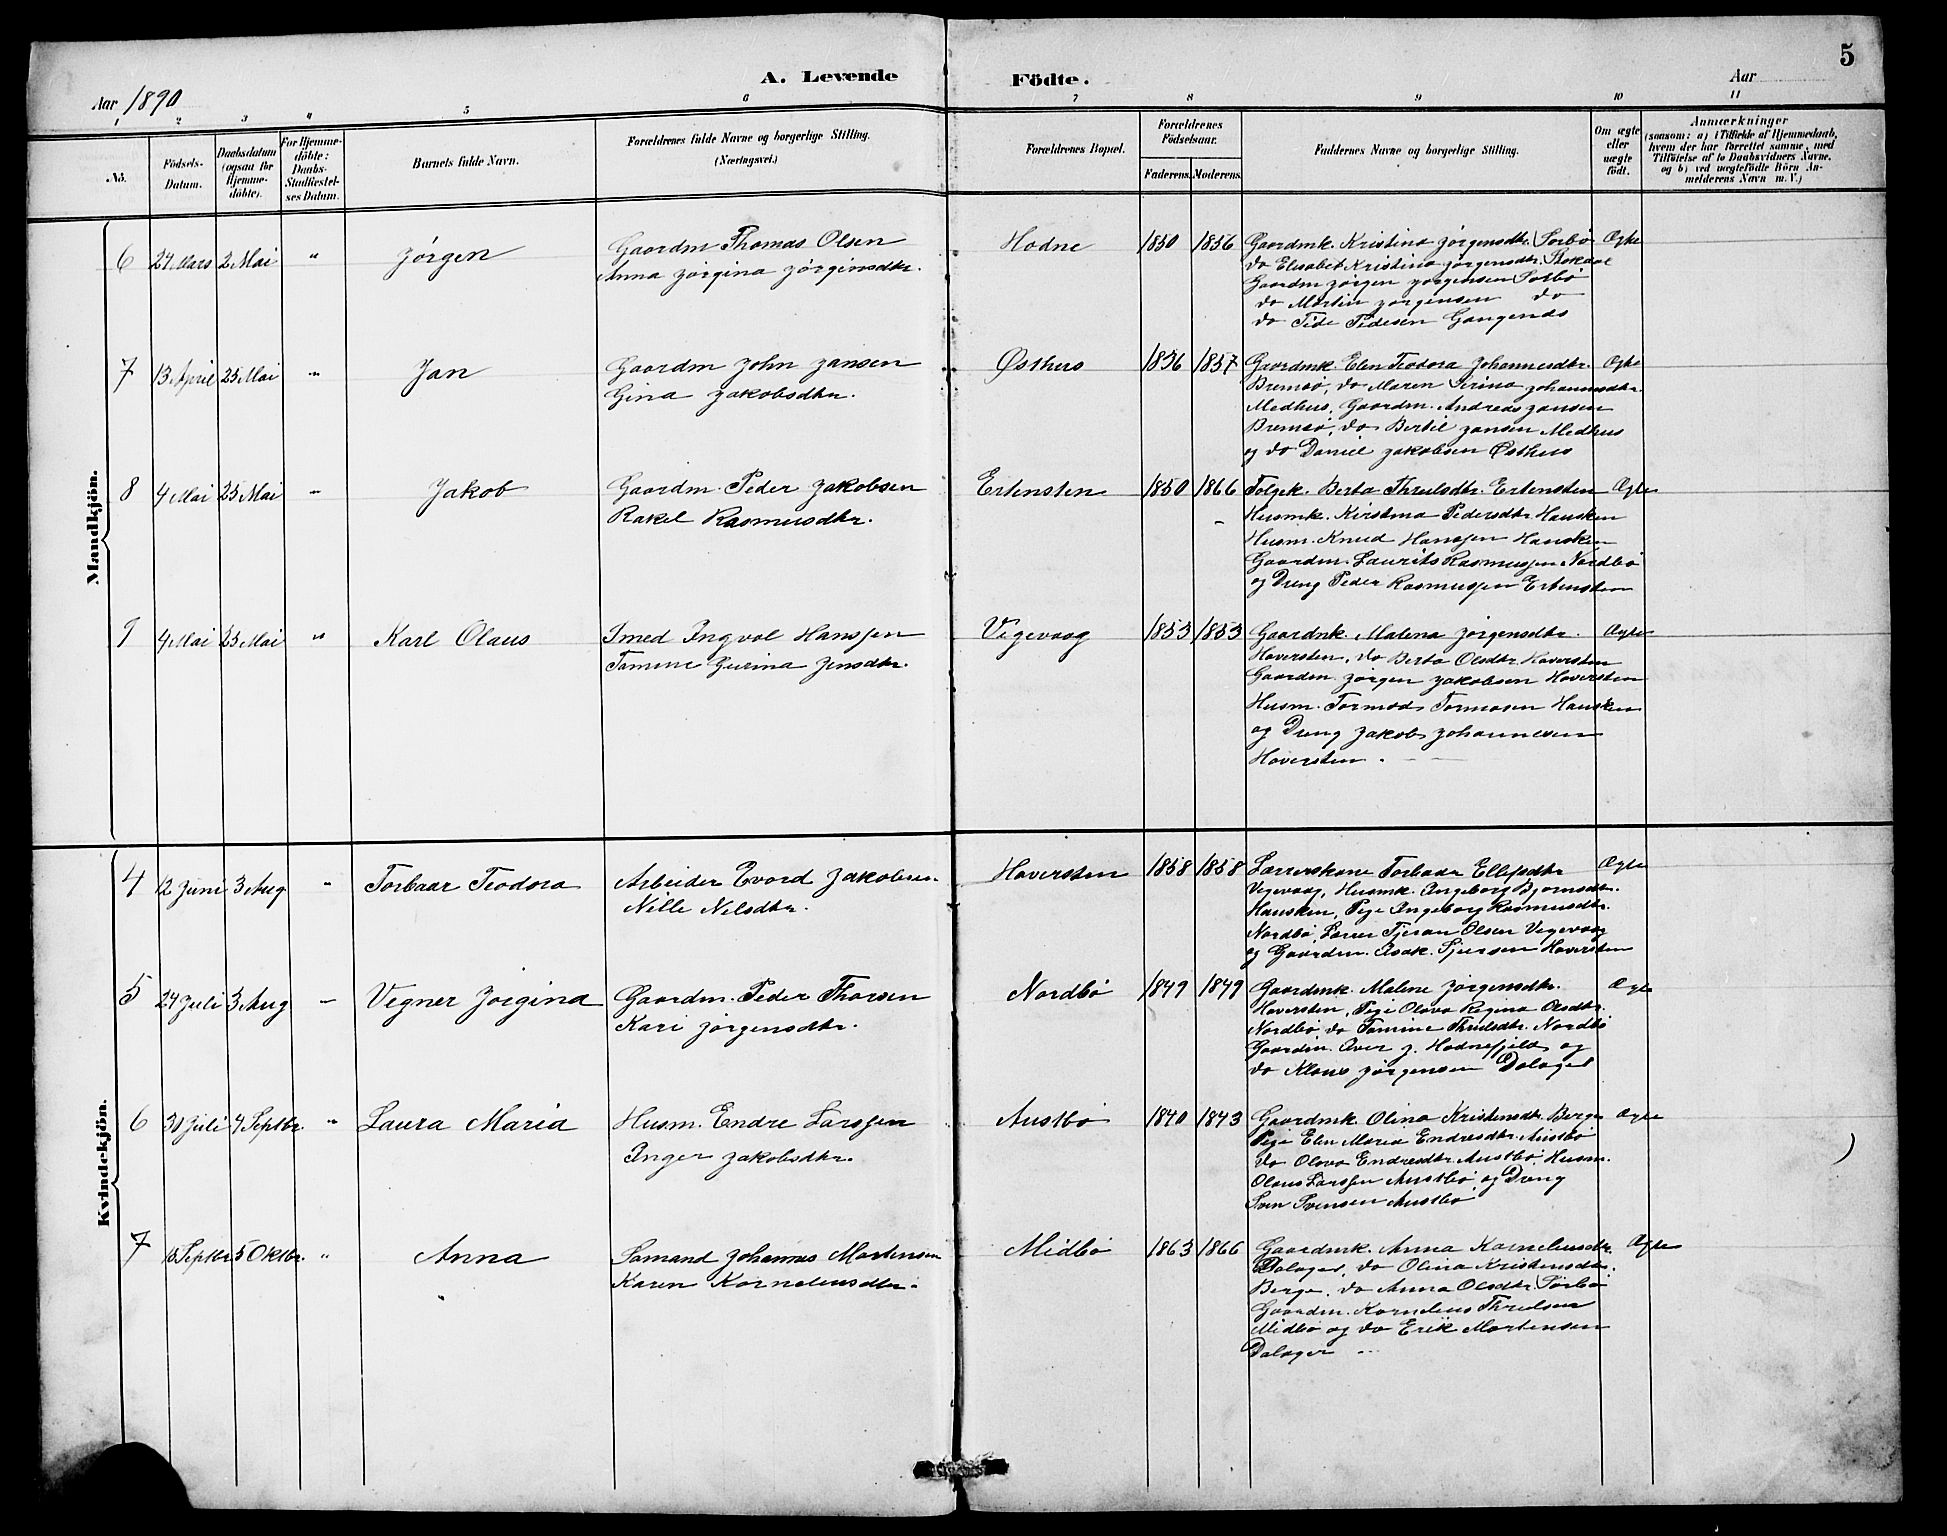 5
A. Levende Födte.
Aar 1890
Aar
1 2 3 4 5 6 7 8 9 10 11
No.
Födsels-
Datum.
Daabsdatum
(ogsaa for
Hjemme-
döbte).
For Hjemme-
döbte:
Daabs-
Stadfæstel-
ses Datum.
Barnets fulde Navn.
Forældrenes fulde Navne og borgerlige Stilling.
(Næringsvei.)
Forældrenes Bopæl.
Forældrenes
Födselsaar.
Faderens. Moderens.
Faddernes Navne og borgerlige Stilling.
Om ægte
eller
uægte
födt.
Anmærkninger
(saasom: a) i Tilfælde af Hjemmedaab,
hvem der har forrettet samme, med
Tilföielse af to Daabsvidners Navne,
og b) ved uægtefödte Börn An-
melderens Navn m. V.)
Mandkjön.
6 24 Mars 2 Mai " Jørgen
Gaardm Thomas Olsen
Anna Jørgina Jørginsdtr.
Hodne 1850 1856
Gaardmk. Kristina Jørgensdtr. Sørbø
do Elisabet Kristina Jørgensdtr.
Gaardm Jørgen Jørgensen Sørbø
do Martin Jørgensen do
do Pedersen
Ægte
7 13 April 25 Mai " Jan
Gaardm John Jansen
Gina Jakobsdtr.
Østhus 1856 1857
Gaardmk. Elen Teodora Johannesdtr.
Bremsø, do Maren Serina Johannesdtr.
Medhus, Gaardm. Andreas Jansen
Bremsø, do Bertil Jansen Medhus
og do Daniel Jakobsen Østhus
Ægte
8 4 Mai 25 Mai " Jakob
Gaardm. Peder Jakobsen
Rakel Rasmusdtr.
Ertensten 1850 1866
Berta Ertensten
Husmk. Kirstina Pedersdtr. Hausken
Husm. Knud Hansen Hausken
Gaardm. Laurits Rasmussen Nordbø
og Dreng Peder Rasmussen Ertensten
Ægte
9 4 Mai 25 Mai " Karl Olaus
Smed Ingval Hansen
Tomine Gurina Jensdtr.
Vigevaag 1853 1853
Gaardmk. Malena Jørgensdtr.
Haversten, do Berta Olsdtr. Haversten
Gaardm. Jørgen Jakobsen Haversten
Husm. Tormod Tormosen Hausken
og Dreng Jakob Johannesen
Haversten.
Ægte
Kvindekjön.
4 12 Juni 3 Aug " Torbaar Teodora
Arbeider Evord Jakobsen
Nille Nilsdtr.
Haversten 1858 1858
Lærerskone Torbaar Ellefsdtr
Vigevaag, Husmk. Ingeborg Bjørnsdtr.
Hausken, Pige Ingeborg Rasmusdtr.
Nordbø, Lærer Tjeran Olsen Vigevaag
og Gaardm. Isak Haversten
Ægte
5 24 Juli 3 Aug " Vegner Jorgina
Gaardm. Peder Thorsen
Kari Jørgensdtr.
Nordbø 1849 1849
Gaardmk. Malene Jørgensdtr.
Haversten, Pige Olova Regina Olsdtr.
Nordbø, do Tomine Nordbø
Gaardm. Iver J. Hodnefjeld og
do Klaus Jørgensen Dalager
Ægte
6 30 Juli 7 Septbr. " Laura Maria
Husm. Endre Larssen
Inger Jakobsdtr.
Austbø 1840 1843
Gaardmk. Olina Kristensdtr. Berge
Pige Elen Maria Endresdtr. Austbø
do Olova Endresdtr. Austbø, Husm.
Olaus Larssen Austbø og Dreng
Sven Svensen Austbø
Ægte
7 Septbr 5 Oktbr. " Anna
Sømand Johannes Mortensen
Karen Korneliusdtr.
Midbø 1863 1866
Gaardmk. Anna Korneliusdtr.
Dalager, do Olina Kristensdtr.
Berge, do Anna Olsdtr. Sørbø
Gaardm. Kornelius
Midbø og do Erik Mortensen
Dalager
Ægte